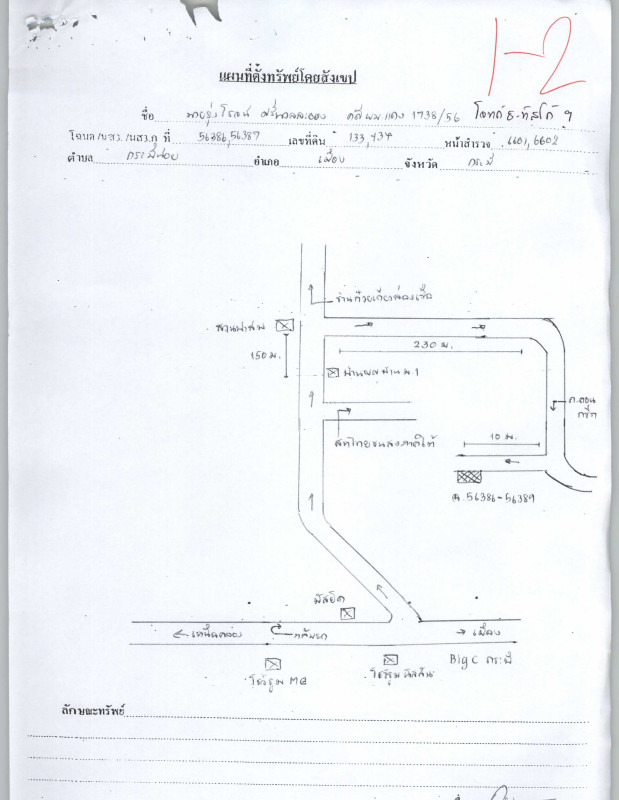 1-2
แผนที่ตั้งทรัพย์โดยสังเขป
ชื่อ คดีหมายแดง 1738/56 โจทก์ ธ.ทิสโก้ ฯ
โฉนด/นส3./นส3.ก ที่ 56386,56387 เลขที่ดิน 133,434 หน้าสำรวจ 6601,6602
ตำบล กระบี่น้อย อำเภอ เมือง จังหวัด กระบี่
ร้านก๋วยเตี๋ยวล่องเรือ
สวนปาล์ม
150 ม.
230 ม.
บ้านผญ.บ้าน ม.1
ถ.คอนกรีต
สหไทยขนส่งภาคใต้
10 ม.
ฉ. 56386-56389
มัสยิด
เหนือคลอง
กลับรถ
เมือง
Big C กระบี่
โชว์รูม MG
โชว์รูม นิสสัน
ลักษณะทรัพย์